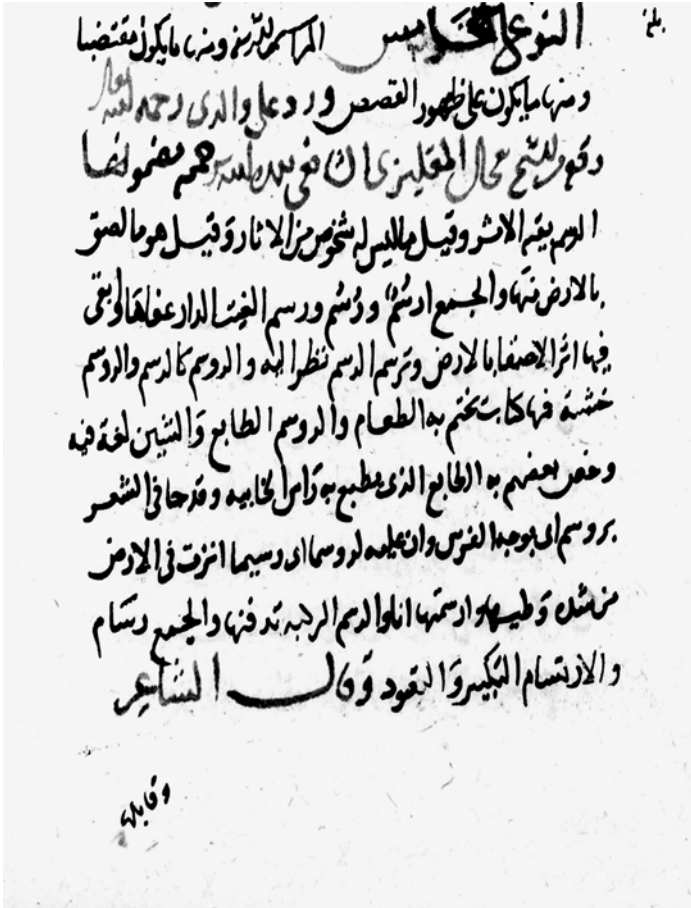 بلغ
النوع الخامس المراسم للدسه ومنها ما يكون مقتضبا
ومنها ما يكون على ظهور القصص ورد على والدى رحمه الله
رقع للشيخ المقليزى
الرسم بقية الاثر وقيل ما ليس له شخوص من الاثار وقيل هو ما لصق
بالارض منها والجمع ارسم ورسوم ورسم الغيث الدار عفاها وابقى
فيها اثرا لاصقا بالارض وترسم الرسم نظر اليه والروسم كالرسم والروسم
خشبة فيها كتاب يختم به الطعام والروسم الطابع والشين لغة فيه
وخص بعضهم به الطابع الذى يطبع به راس الخابيه وقد جا فى الشعر
بروسم اى بوجه الفرس وان عليه لروسما اى رسيما اثرت فى الارض
من شدة وطيها وارسمتها انا والرسم الركيه تدفنها والجمع رسام
والارتسام التكبير والتعود وقال الشاعر
وقابلها